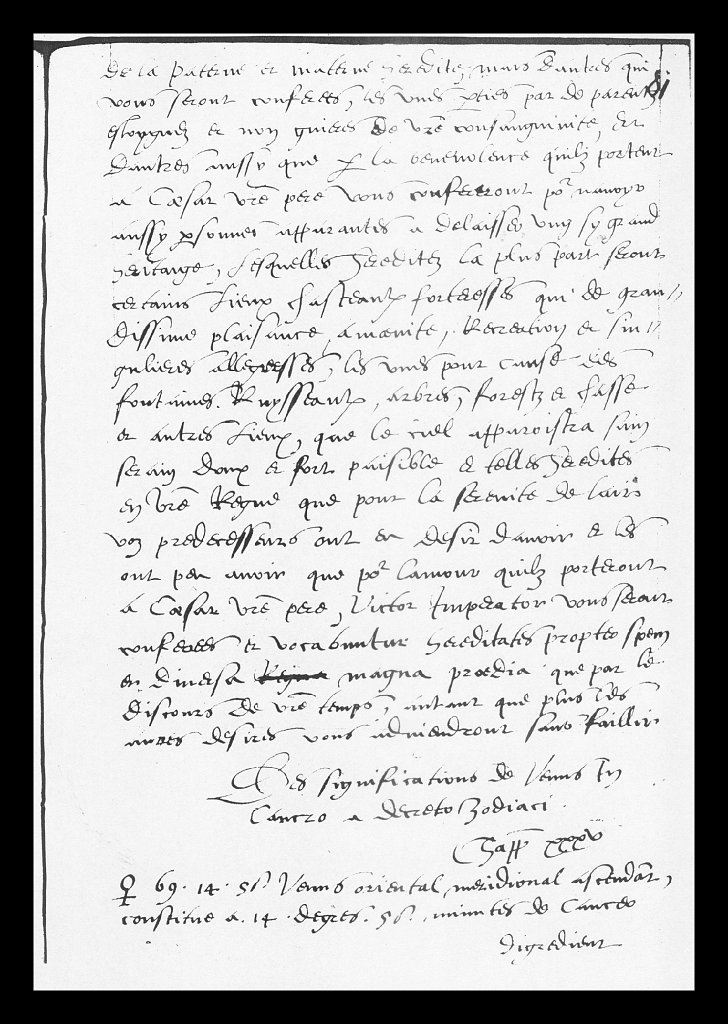 de la paterne et materne heredite, mais dautres qui
vous seront conferees, les unes pties par de parentz
eslongnez et non guieres de vre consanguinite, Et
dautres aussy que p la benevolence quilz portent
a Cæsar vre pere vous confereront po navoyr
aussy psonnes apparantes a delaisser ung sy grand
heritaige, Lesquelles hereditez la plus part seront
certains Lieux chasteaulx forteresses qui de gran-
dissime plaisance, amœnite, Recreation et sin-
gulieres allegresses, les unes pour cause des
fontaines. Ruysseaulx, arbres, forestz et chasse
et autres Lieux, que le ciel apparoistra sain
serain doux et fort paisible et telles heredites
en vre Regne que pour la serenite de lair
voz predecesseurs ont eu desir davoir et les
ont peu avoir que po lamour quilz porteront
a Cæsar vre pere, Victor Imperator vous seront
conferees et vocabuntur hereditates propter spem
en diversa magna prædia que par le
discours de vre temps, autant que plus les
aures desires vous adviendront sans faillir
Des significations de Venus In
Cancro a decreto Zodiaci.
Chapp xxxv
♀ 69. 14. 56. Venus oriental, meridional ascendant,
constitue a. 14. degres. 56. minutes de Cancer
Digredient